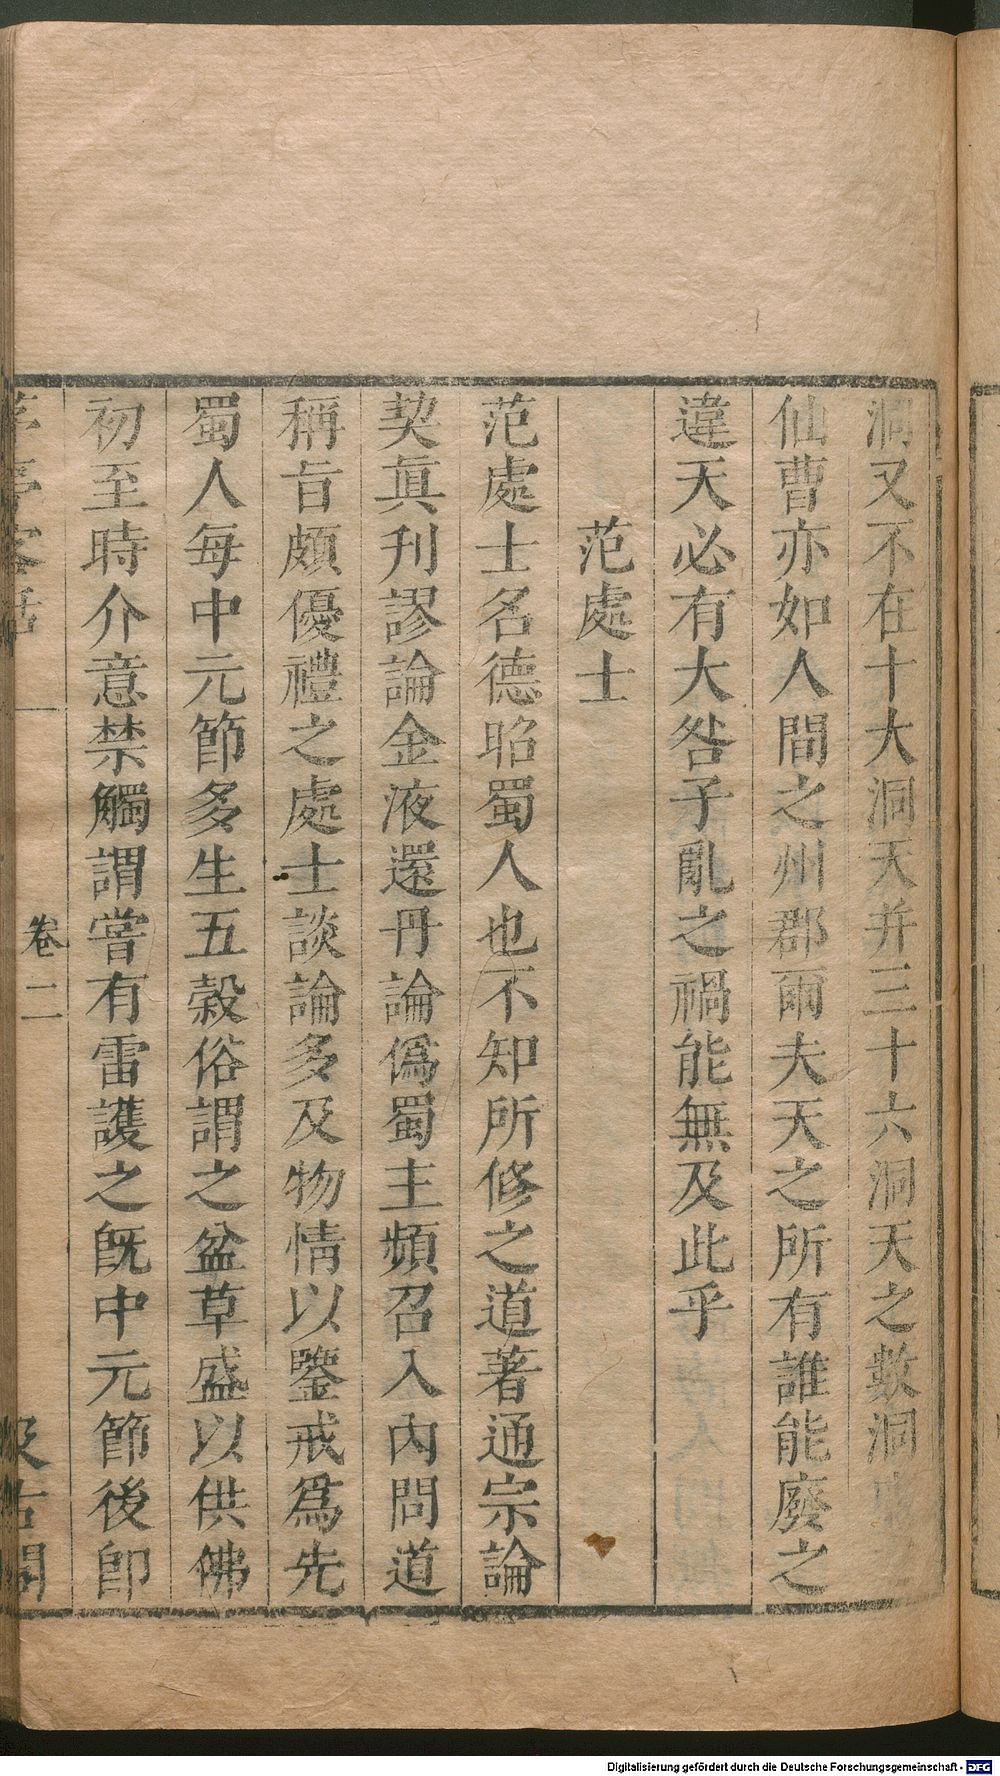 洞又不在十大洞天并三十六洞天之數洞
仙曹亦如人間之州郡爾夫天之所有誰能廢之
違天必有大咎子亂之禍能無及此乎
范處士
范處士名德昭蜀人也不知所修之道著通宗論
契眞刋謬論金液還丹論僞蜀主頻召入內問道
稱旨頗優禮之處士談論多及物情以鑒戒爲先
蜀人每中元節多生五榖俗謂之盆草盛以供佛
初至時介意禁觸謂嘗有雷護之旣中元節後卽
茅亭客話
卷二
汲古閣
Digitalisierung gefördert durch die Deutsche Forschungsgemeinschaft - DFG